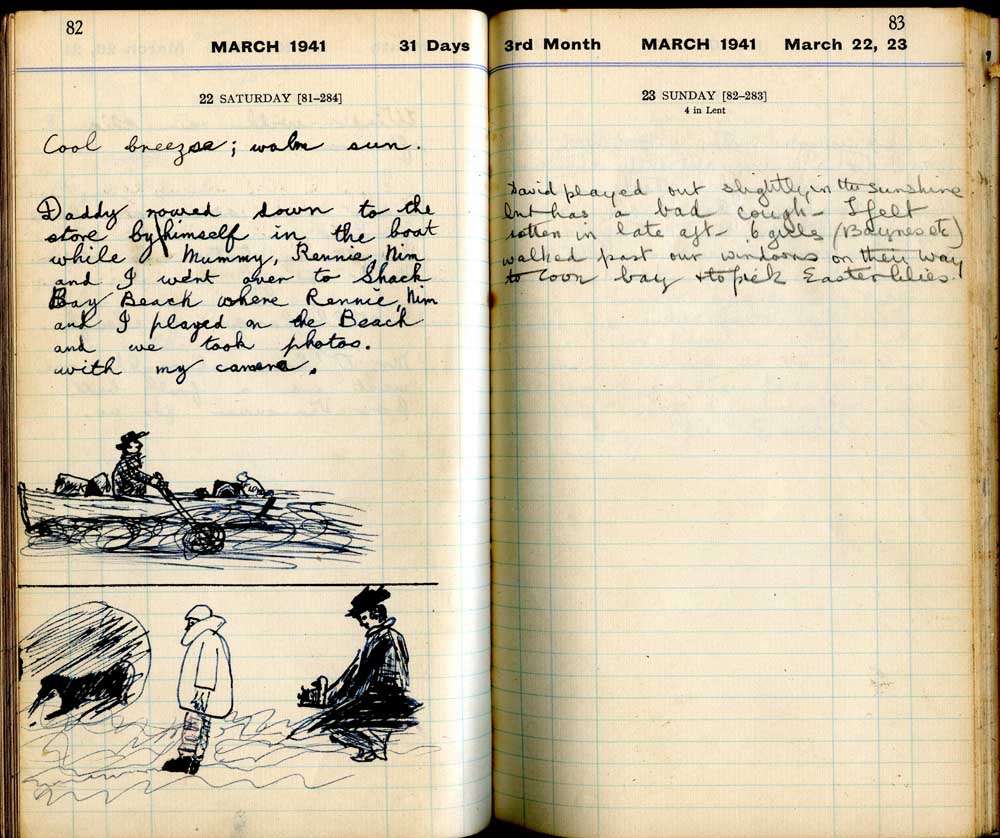 82
MARCH 1941 31 Days
22 SATURDAY [81–284]
Cool breeze; walm sun.
Daddy rowed down to the
store by himself in the boat
while Mummy, Rennie, Nim
and I went over to Shack
Bay Beach where Rennie, Nim
and I played on the Beach
and we took photos.
with my camera.
83
3rd Month MARCH 1941 March 22, 23
23 SUNDAY [82–283]
4 in Lent
David played out slightly in the sunshine
but has a bad cough – I felt
rotten in late aft – 6 girls (Baynes etc)
walked past our windows on their way
to Coon bay & to pick Easter lilies.